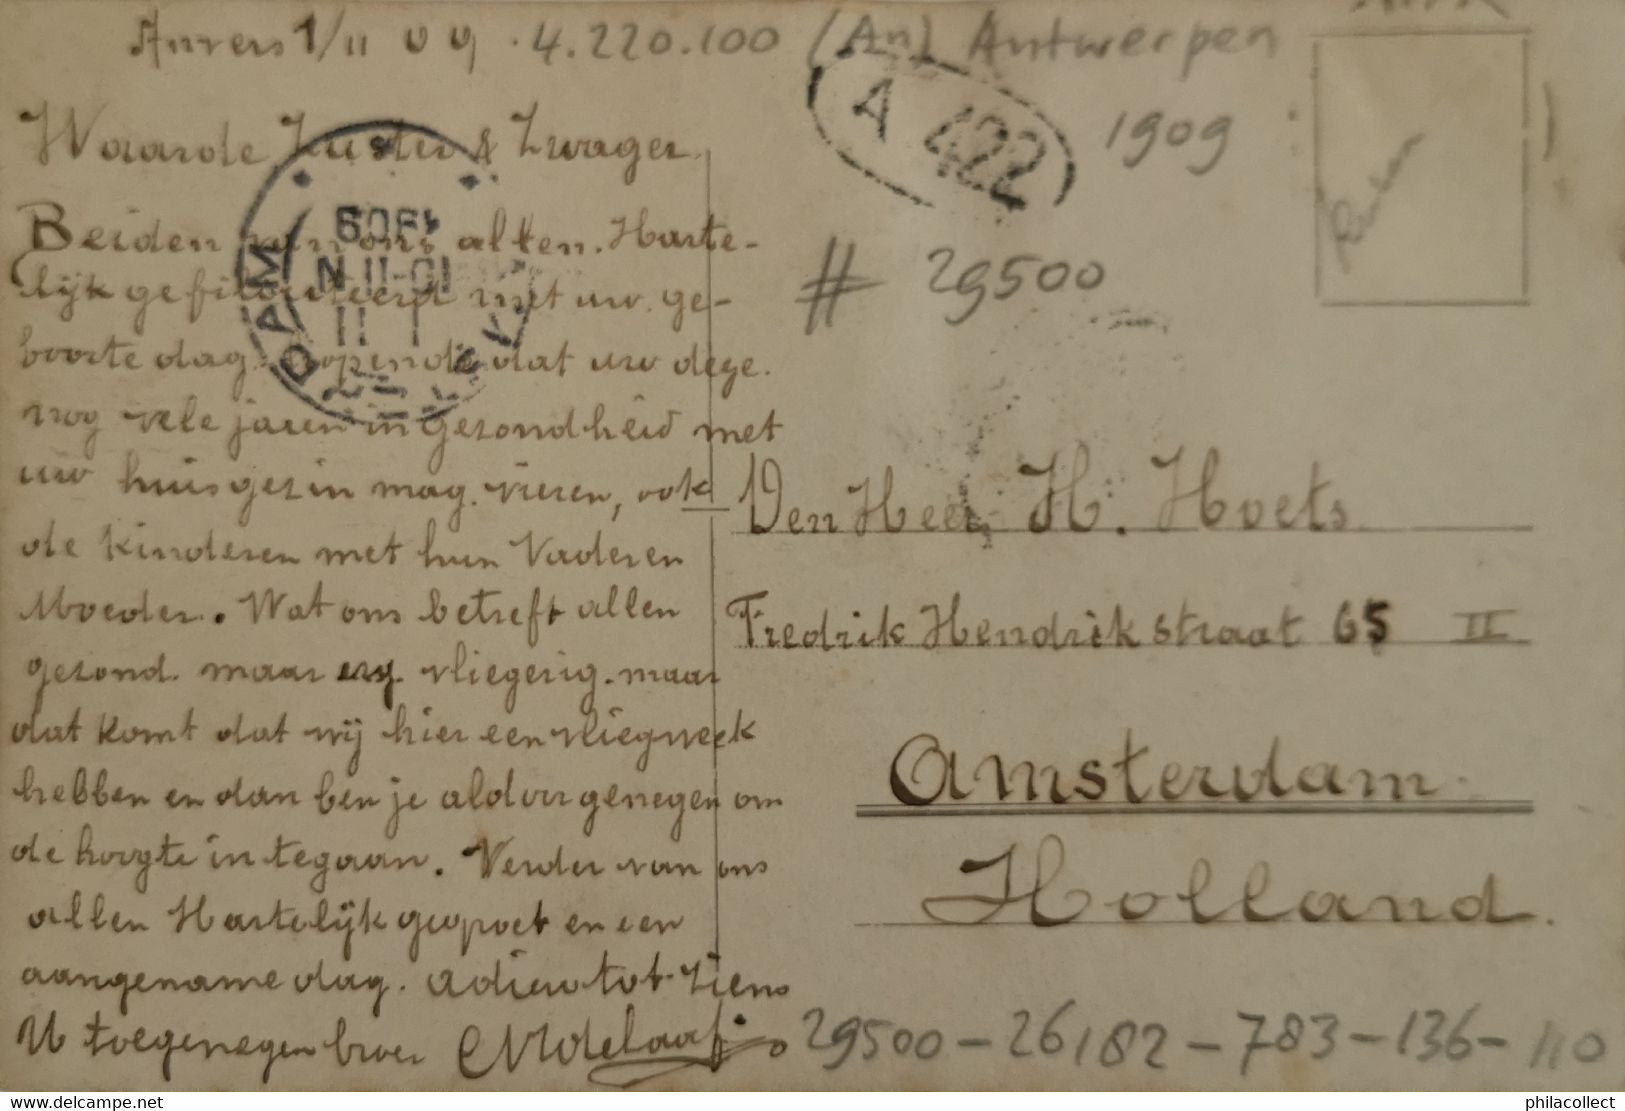 Anvers 1/11 09. 4.220.100 (An) Antwerpen
A 422
1909
# 29500
Waarde Zuster & Zwager.
Beiden van ons allen. Harte-
lijk gefiliciteerd met uw ge-
boorte dag. hopende dat uw dege.
nog vele jaren in gezondheid met
uw huisgezin mag vieren, ook
de kinderen met hun Vader en
Moeder. Wat ons betreft allen
gezond. maar erg vliegerig. maar
dat komt dat wij hier een vliegweek
hebben en dan ben je aldoor genegen om
de hoogte in te gaan. Verder van ons
allen Hartelijk gegroet en een
aangename dag. adieu tot ziens
U toegenegen broer
Den Heer H. Hoets
Fredrik Hendrikstraat 65 II
Amsterdam
Holland.
29500-26182-783-136-110
1909
10-11 N
DAM
www.delcampe.net
philacollect